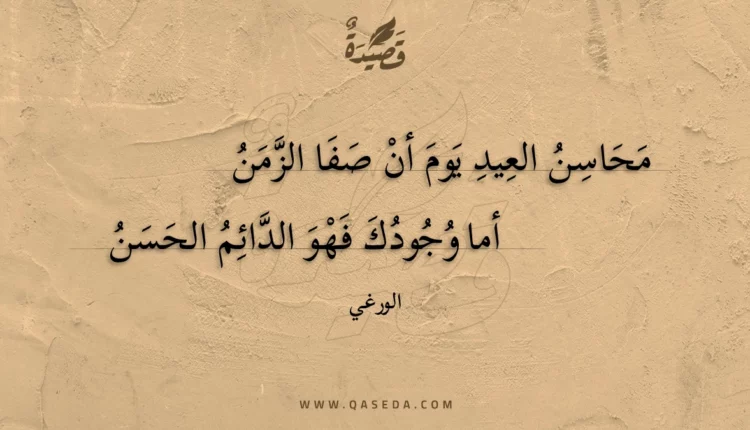 قَصِيدَةٌ
مَحَاسِنُ العِيدِ يَومَ أنْ صَفَا الزَّمَنُ
أما وُجُودُكَ فَهْوَ الدَّائِمُ الحَسَنُ
الورغي
WWW.QASEDA.COM